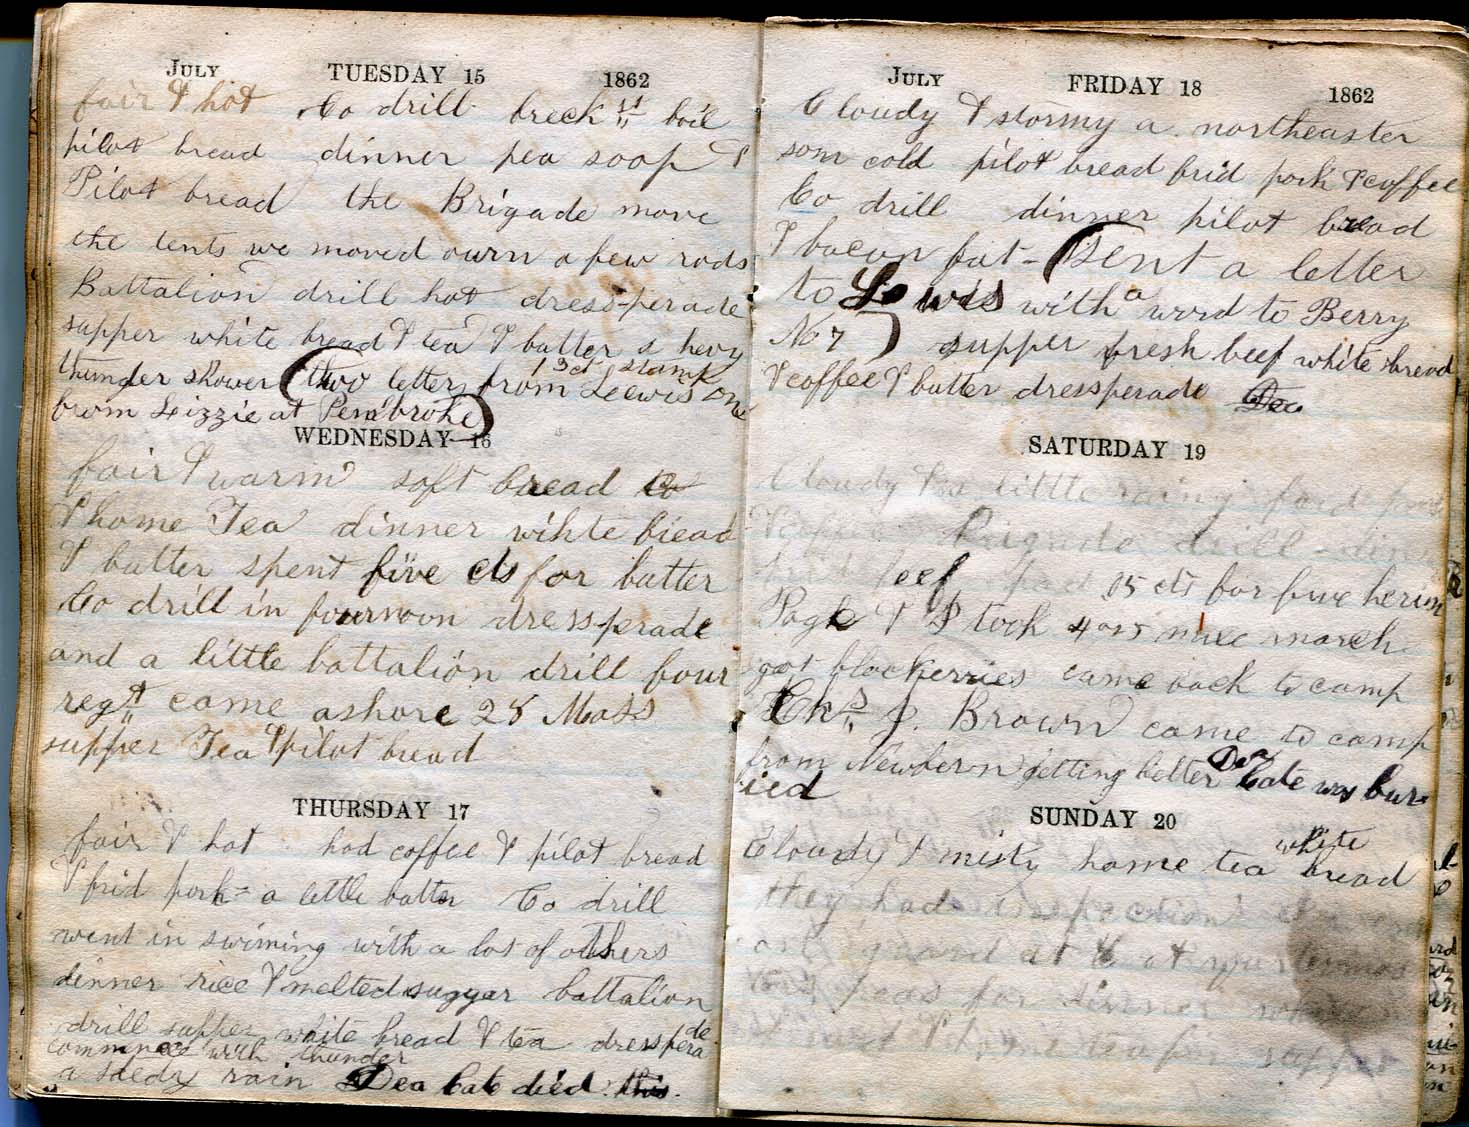 JULY TUESDAY 15 1862
fair & hot Co drill breck st boil
pilot bread dinner pea soop &
Pilot bread the Brigade move
the tents we moved ourn a few rods
Battalion drill hot dress-perade
supper white bread & tea & butter a hevy
thunder shower (two letters from 3ct stamp Leewis one
from Lizzie at Pembroke)
WEDNESDAY 16
fair & warm soft bread
& home Tea dinner wihte bread
& butter spent five cts for butter
Co drill in fournoon dress-perade
and a little battalion drill four
regt came ashore 28 Mass
supper Tea & pilot bread
THURSDAY 17
fair & hot had coffee & pilot bread
& frid pork = a little butter Co drill
went in swiming with a lot of others
dinner rice & melted suggar battalion
drill supper white bread & tea dresspera de
commnece with thunder
a stedy rain Dea Cate died this
JULY FRIDAY 18 1862
Cloudy & stormy a northeaster
som cold pilot bread frid pork & coffee
Co drill dinner pilot bread
& bacon fat - (Sent a letter
to Lewis with a word to Berry
No 7) supper fresh beef white bread
& coffee & butter dressperade Dea
SATURDAY 19
Cloudy & a little rainy
& coffee Brigade drill
beef paid 15 cts for five herin
Page & I took 4 or 5 mile march
got blackerries came back to camp
Chs J. Brown came to camp
from Newbern getting better Dea Cate was bur-
ied
SUNDAY 20
Cloudy & misty home tea white bread
they had inspection
guard at
peas for dinner
& home tea for supper